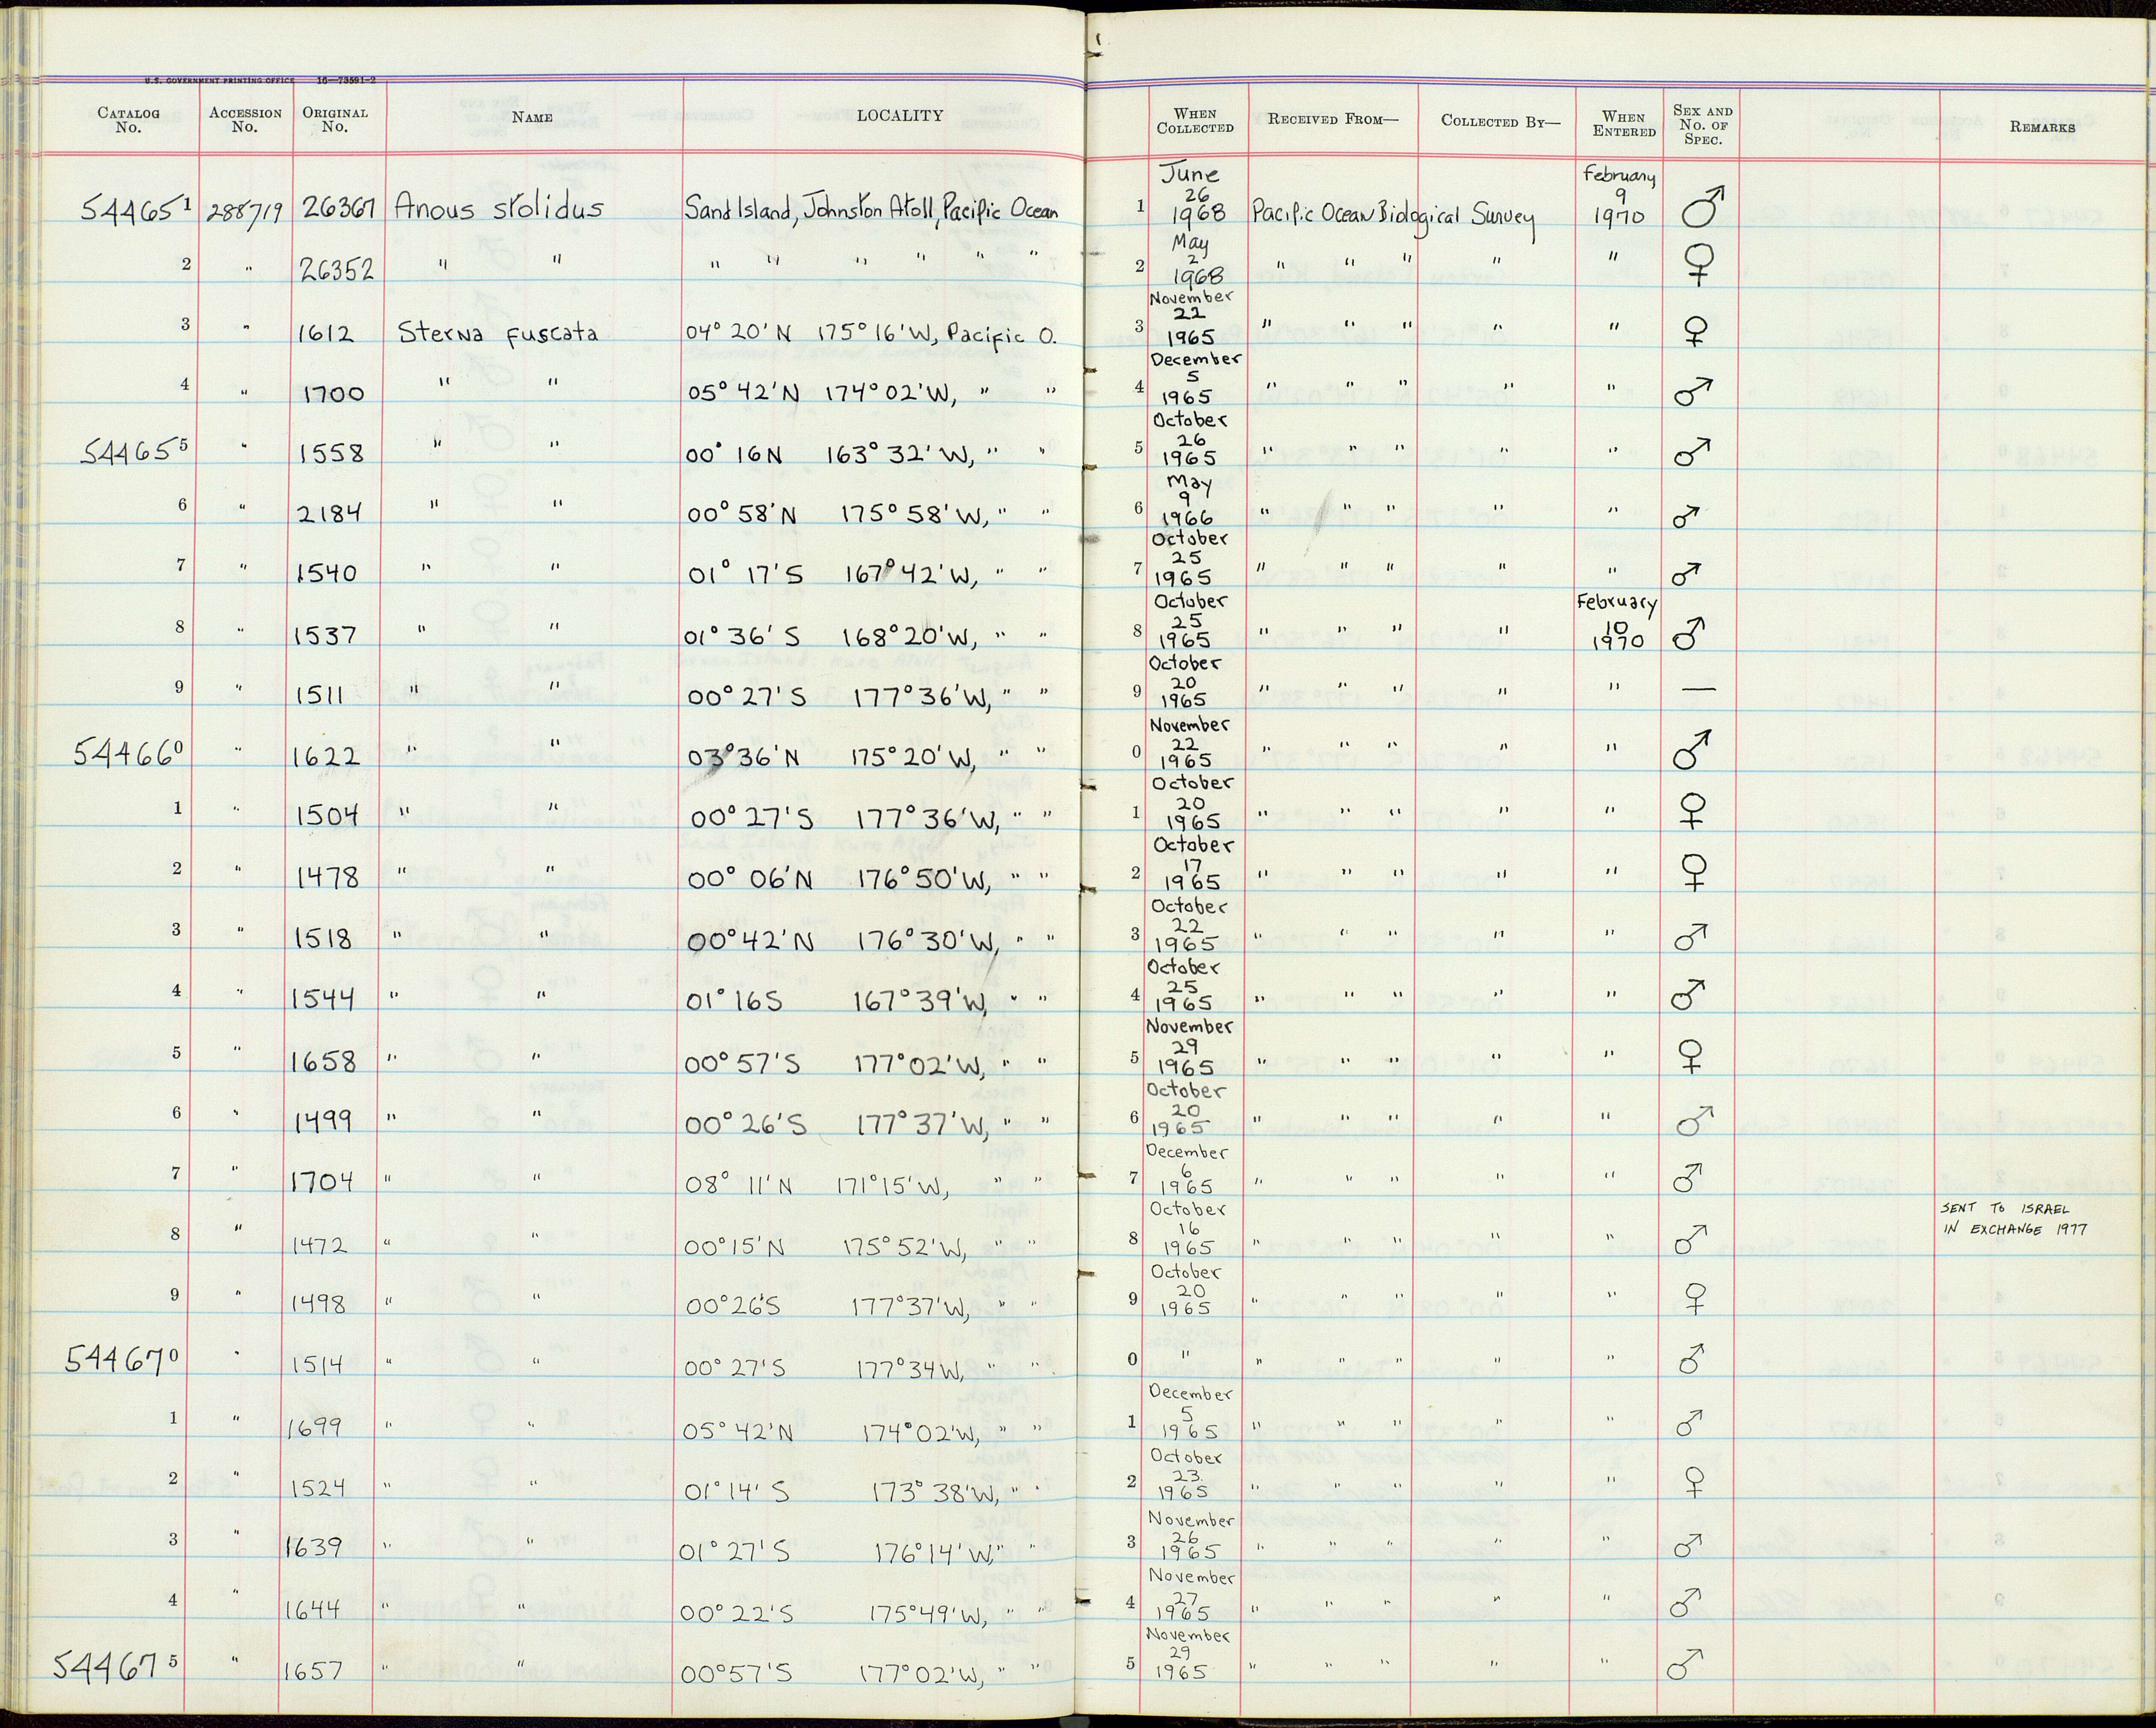 U.S. GOVERNMENT PRINTING OFFICE 16—73591-2
CATALOG No. ACCESSION No. ORIGINAL No. NAME LOCALITY WHEN COLLECTED RECEIVED FROM— COLLECTED BY— WHEN ENTERED SEX AND No. OF SPEC. REMARKS
544651 288719 26367 Anous stolidus Sand Island, Johnston Atoll, Pacific Ocean 1 June 26 1968 Pacific Ocean Biological Survey February 9 1970 ♂
2 " 26352 " " " " " " " " 2 May 2 1968 " " " " " ♀
3 " 1612 Sterna fuscata 04° 20' N 175° 16' W, Pacific O. 3 November 22 1965 " " " " " ♀
4 " 1700 " " 05° 42' N 174° 02' W, " " 4 December 5 1965 " " " " " ♂
544655 " 1558 " " 00° 16 N 163° 32' W, " " 5 October 26 1965 " " " " " ♂
6 " 2184 " " 00° 58' N 175° 58' W, " " 6 May 9 1966 " " " " " ♂
7 " 1540 " " 01° 17' S 167° 42' W, " " 7 October 25 1965 " " " " " ♂
8 " 1537 " " 01° 36' S 168° 20' W, " " 8 October 25 1965 " " " " February 10 1970 ♂
9 " 1511 " " 00° 27' S 177° 36' W, " " 9 October 20 1965 " " " " " —
544660 " 1622 " " 03° 36' N 175° 20' W, " " 0 November 22 1965 " " " " " ♂
1 " 1504 " " 00° 27' S 177° 36' W, " " 1 October 20 1965 " " " " " ♀
2 " 1478 " " 00° 06' N 176° 50' W, " " 2 October 17 1965 " " " " " ♀
3 " 1518 " " 00° 42' N 176° 30' W, " " 3 October 22 1965 " " " " " ♂
4 " 1544 " " 01° 16 S 167° 39' W, " " 4 October 25 1965 " " " " " ♂
5 " 1658 " " 00° 57' S 177° 02' W, " " 5 November 29 1965 " " " " " ♀
6 " 1499 " " 00° 26' S 177° 37' W, " " 6 October 20 1965 " " " " " ♂
7 " 1704 " " 08° 11' N 171° 15' W, " " 7 December 6 1965 " " " " " ♂
8 " 1472 " " 00° 15' N 175° 52' W, " " 8 October 16 1965 " " " " " ♂ SENT TO ISRAEL IN EXCHANGE 1977
9 " 1498 " " 00° 26' S 177° 37' W, " " 9 October 20 1965 " " " " " ♀
544670 " 1514 " " 00° 27' S 177° 34 W, " " 0 " " " " " " ♂
1 " 1699 " " 05° 42' N 174° 02' W, " " 1 December 5 1965 " " " " " ♂
2 " 1524 " " 01° 14' S 173° 38' W, " " 2 October 23 1965 " " " " " ♀
3 " 1639 " " 01° 27' S 176° 14' W, " " 3 November 26 1965 " " " " " ♂
4 " 1644 " " 00° 22' S 175° 49' W, " " 4 November 27 1965 " " " " " ♂
544675 " 1657 " " 00° 57' S 177° 02' W, " " 5 November 29 1965 " " " " " ♂